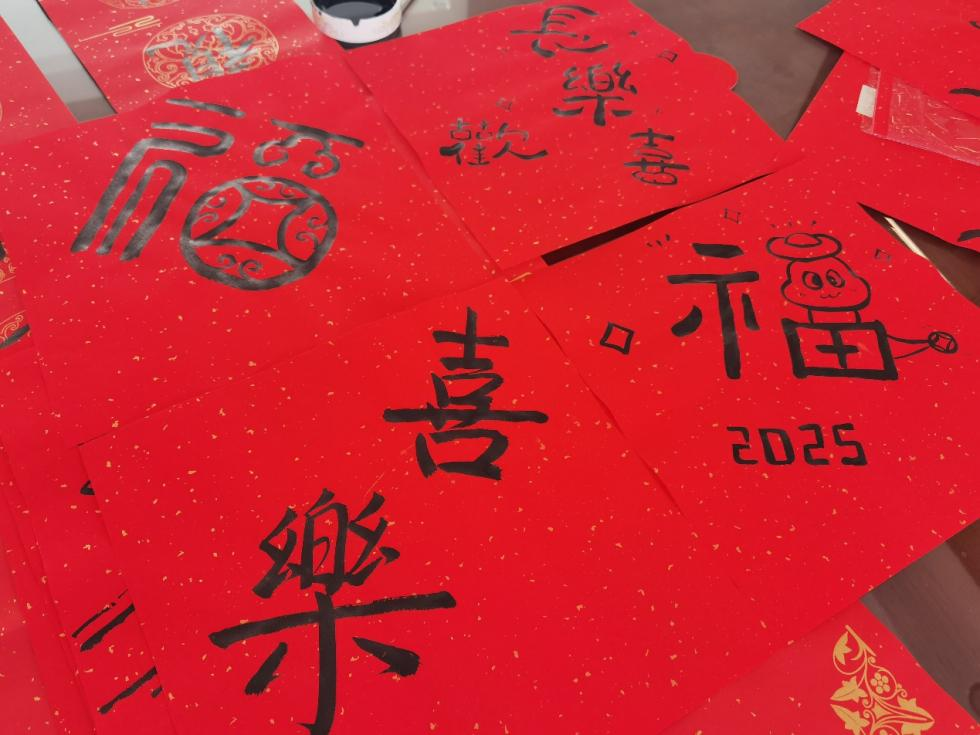 福
長樂
歡喜
福
2025
喜
樂